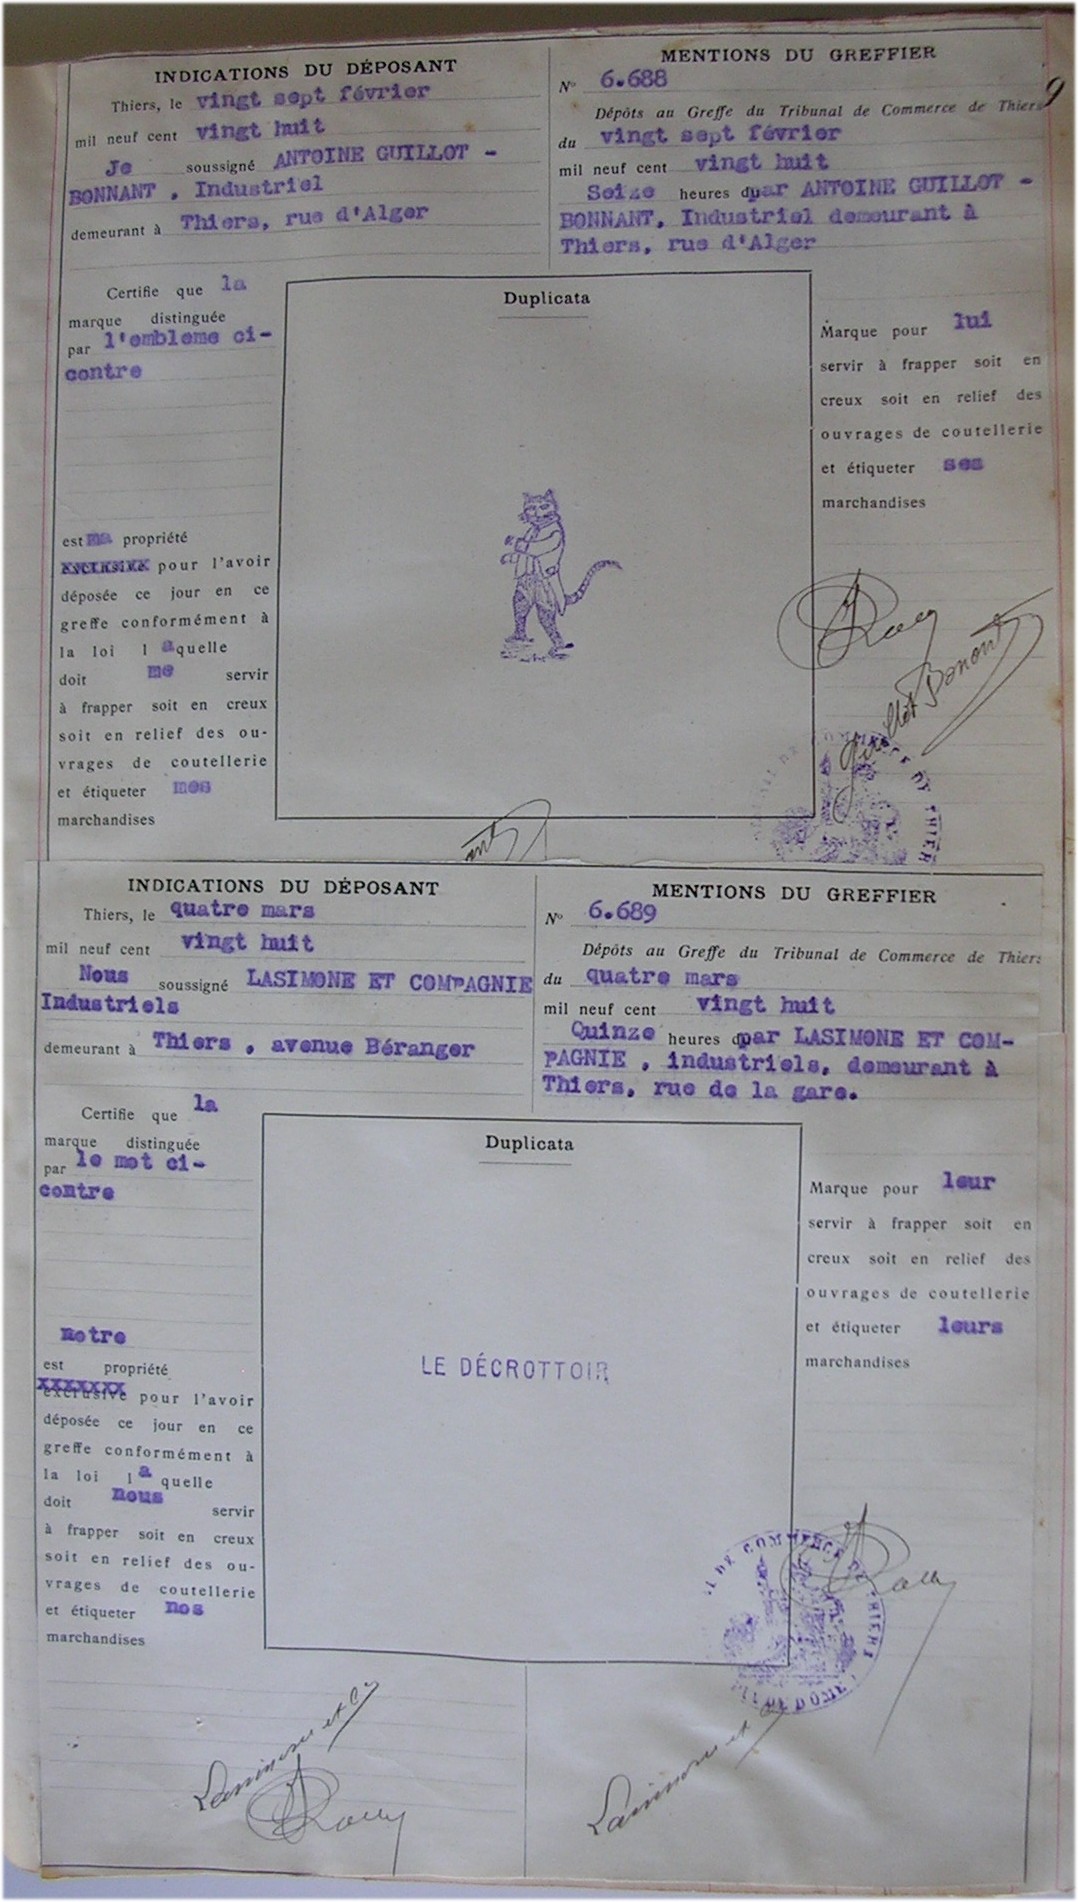 INDICATIONS DU DÉPOSANT
Thiers, le vingt sept février
mil neuf cent vingt huit
Je soussigné ANTOINE GUILLOT -
BONNANT , Industriel
demeurant à Thiers, rue d'Alger
MENTIONS DU GREFFIER
N° 6.688
Dépôts au Greffe du Tribunal de Commerce de Thiers
du vingt sept février
mil neuf cent vingt huit
Seize heures par ANTOINE GUILLOT -
BONNANT, Industriel demeurant à
Thiers, rue d'Alger
9
Certifie que la
marque distinguée
par l'embleme ci-
contre
est ma propriété
pour l'avoir
déposée ce jour en ce
greffe conformément à
la loi laquelle
doit me servir
à frapper soit en creux
soit en relief des ou-
vrages de coutellerie
et étiqueter mes
marchandises
Duplicata
Marque pour lui
servir à frapper soit en
creux soit en relief des
ouvrages de coutellerie
et étiqueter ses
marchandises
Guillot Bonant
DE COMMERCE DE THIER
INDICATIONS DU DÉPOSANT
Thiers, le quatre mars
mil neuf cent vingt huit
Nous soussigné LASIMONE ET COMPAGNIE
Industriels
demeurant à Thiers , avenue Béranger
MENTIONS DU GREFFIER
N° 6.689
Dépôts au Greffe du Tribunal de Commerce de Thiers
du quatre mars
mil neuf cent vingt huit
Quinze heures par LASIMONE ET COM-
PAGNIE , industriels, demeurant à
Thiers, rue de la gare.
Certifie que la
marque distinguée
par le mot ci-
contre
notre
est propriété
XXXXXXX
exclusive pour l'avoir
déposée ce jour en ce
greffe conformément à
la loi laquelle
doit nous servir
à frapper soit en creux
soit en relief des ou-
vrages de coutellerie
et étiqueter nos
marchandises
Duplicata
LE DÉCROTTOIR
Marque pour leur
servir à frapper soit en
creux soit en relief des
ouvrages de coutellerie
et étiqueter leurs
marchandises
DE COMMERCE DE THIERS
DE DOME
Lasimone et Cie
Lasimone et